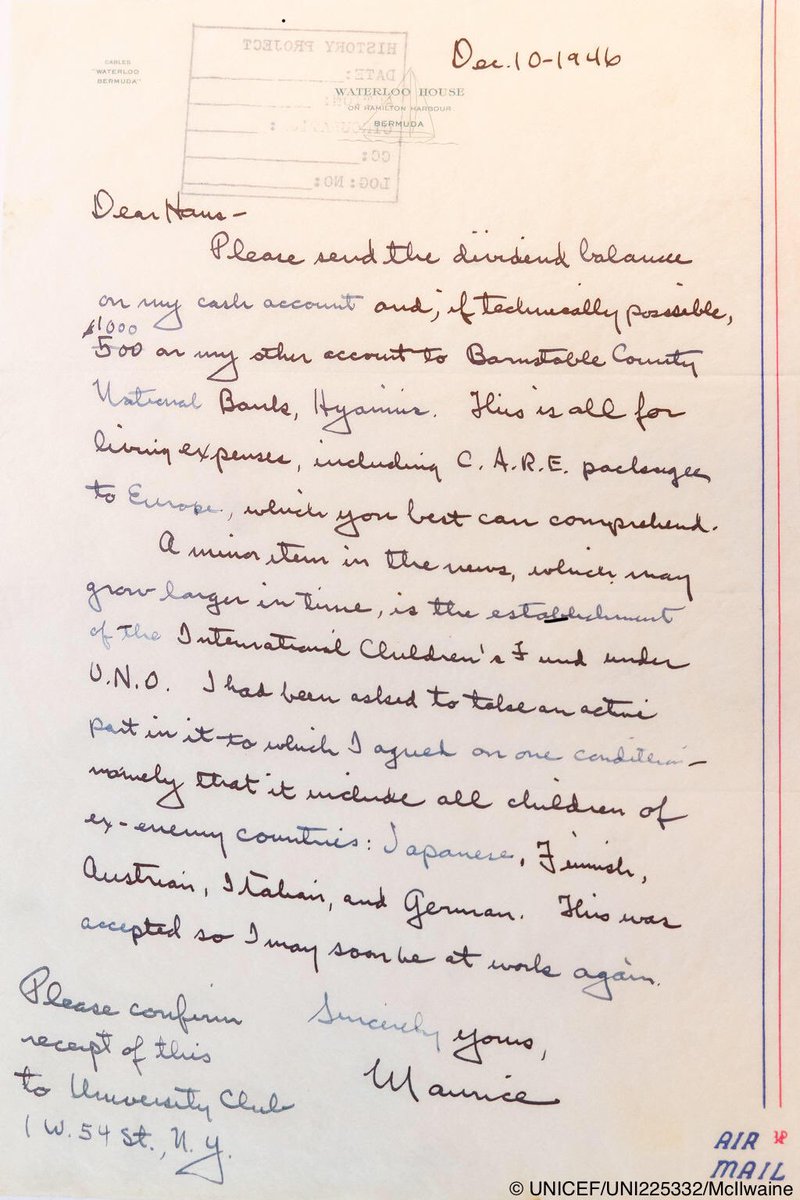 CABLES
"WATERLOO
BERMUDA"
HISTORY PROJECT
DATE:
LOG: NO:
CC:
WATERLOO HOUSE
ON HAMILTON HARBOUR
BERMUDA
Dec. 10-1946
Dear Hans-
Please send the dividend balance
on my cash account and, if technically possible,
$1000
500 on my other account to Barnstable County
National Bank, Hyannis. This is all for
living expenses, including C.A.R.E. packages
to Europe, which you best can comprehend.
A minor item in the news, which may
grow larger in time, is the establishment
of the International Children's Fund under
U.N.O. I had been asked to take an active
part in it to which I agreed on one condition-
namely that it include all children of
ex-enemy countries: Japanese, Finnish,
Austrian, Italian, and German. This was
accepted so I may soon be at work again.
Sincerely yours,
Maurice
Please confirm
receipt of this
to University Club
1 W. 54 St., N.Y.
AIR
MAIL
© UNICEF/UNI225332/McIlwaine